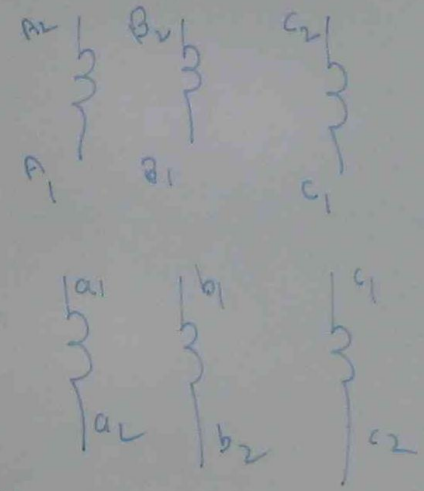 A2 B2 C2
A1 B1 C1
a1 b1 c1
a2 b2 c2